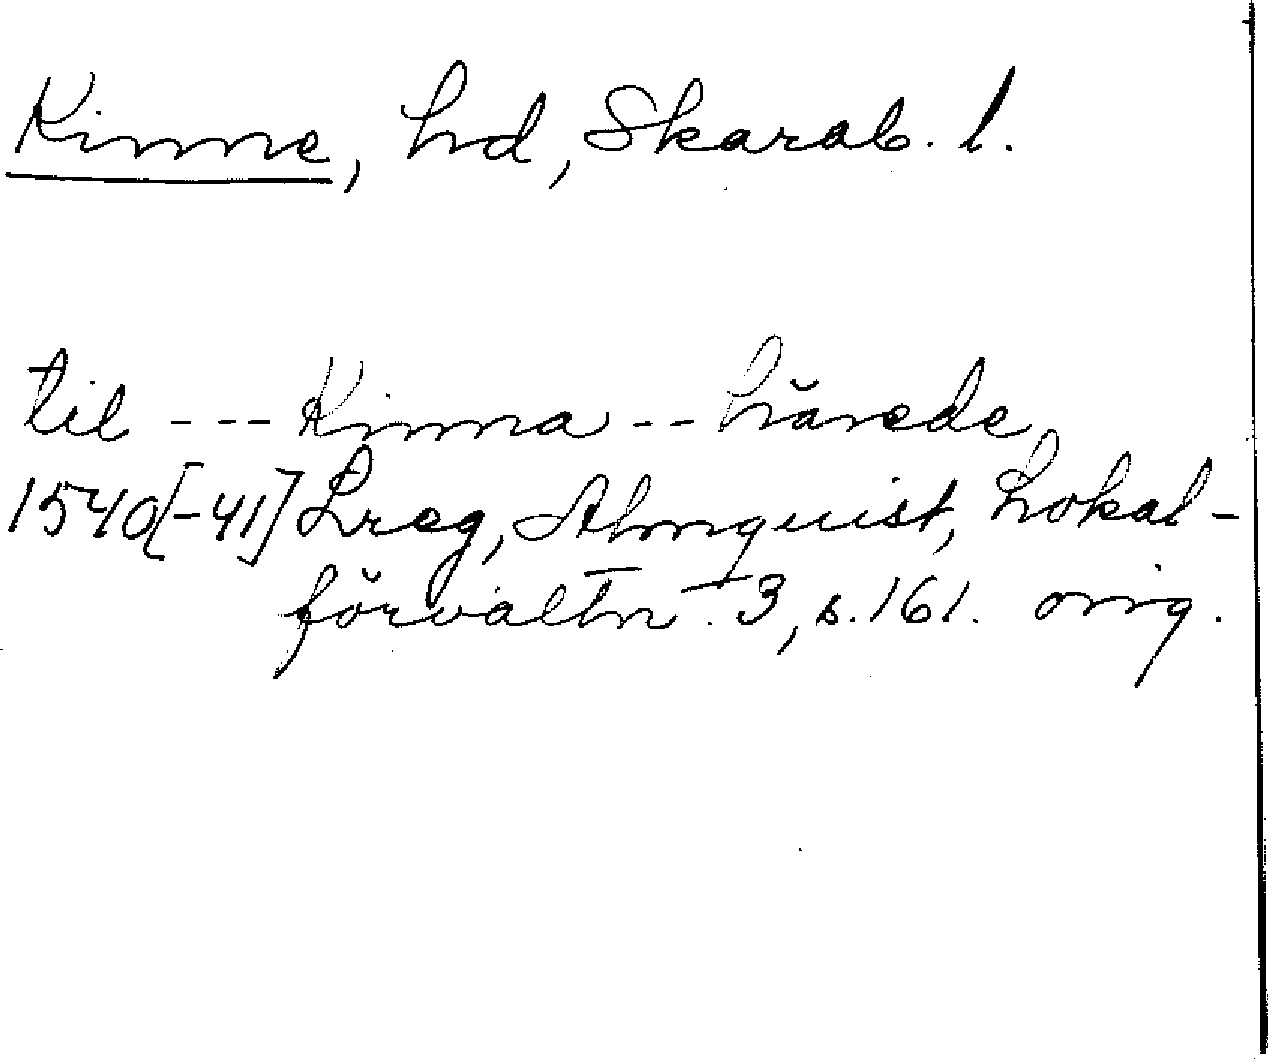 Kinne, hd, Skarab. l.
til --- Kinna -- härede,
1540[-41] Lreg, Almquist, Lokal-
förvaltn. 3, s. 161. orig.